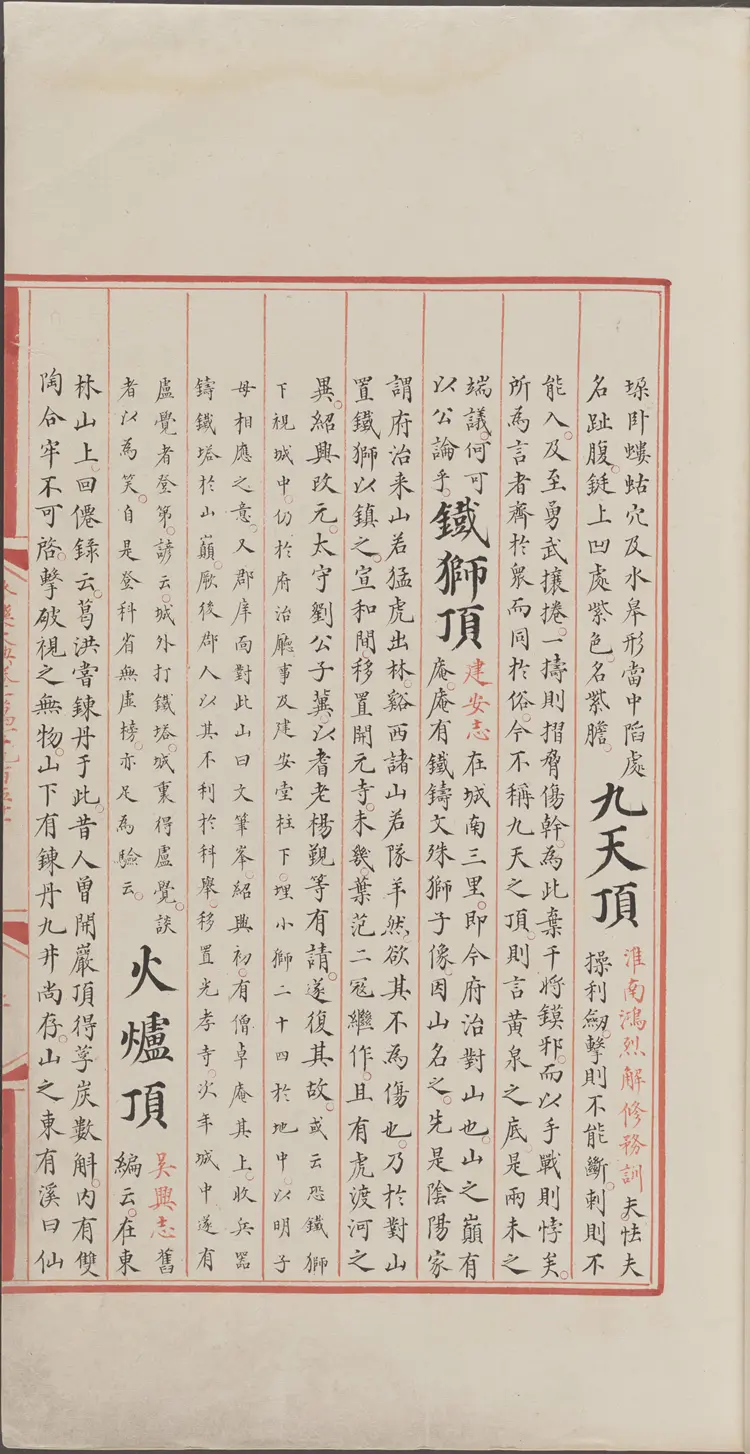 卧螻蛄穴及水皋形當中陷處
名趾腹。鋌上凹處紫色。名紫膽。
九天頂
淮南鴻烈解修務訓夫怯夫
操利劒。擊則不能斷。刺則不
能入。及至勇武攘捲。一擣則摺脅傷幹。為此棄干將鏌邪。而以手戰則悖矣。
所為言者齊於衆而同於俗。今不稱九天之頂。則言黄泉之底。是兩末之
端議。何可
以公論乎。
鐵獅頂
建安志在城南三里。即今府治對山也。山之巔有
庵。庵有鐵鑄文殊獅子像。因山名之。先是陰陽家
謂府治来山若猛虎出林。谿西諸山若隊羊然。欲其不為傷也。乃於對山
置鐵獅以鎮之。宣和間。移置開元寺。未幾。葉范二冦繼作。且有虎渡河之
異。紹興改元。太守劉公子蓂。以耆老楊覲等有請。遂復其故。或云恐鐵獅
下視城中。仍於府治廳事及建安堂柱下。埋小獅二十四於地中。以明子
母相應之意。又郡庠面對此山曰文筆峯。紹興初。有僧卓庵其上。收兵器
鑄鐵塔於山巔。厥後郡人以其不利於科舉。移置光孝寺。次年城中遂有
盧覺者登第。諺云。城外打鐵塔。城裏得盧覺。談
者以為笑。自是登科省無虛榜。亦足為驗云。
火爐頂
吳興志舊
編云。在東
林山上。回僊錄云。葛洪嘗鍊丹于此。昔人曾開巖頂得莩炭數斛。内有雙
陶合牢不可啓。擊破視之無物。山下有鍊丹九井尚存。山之東有溪曰仙